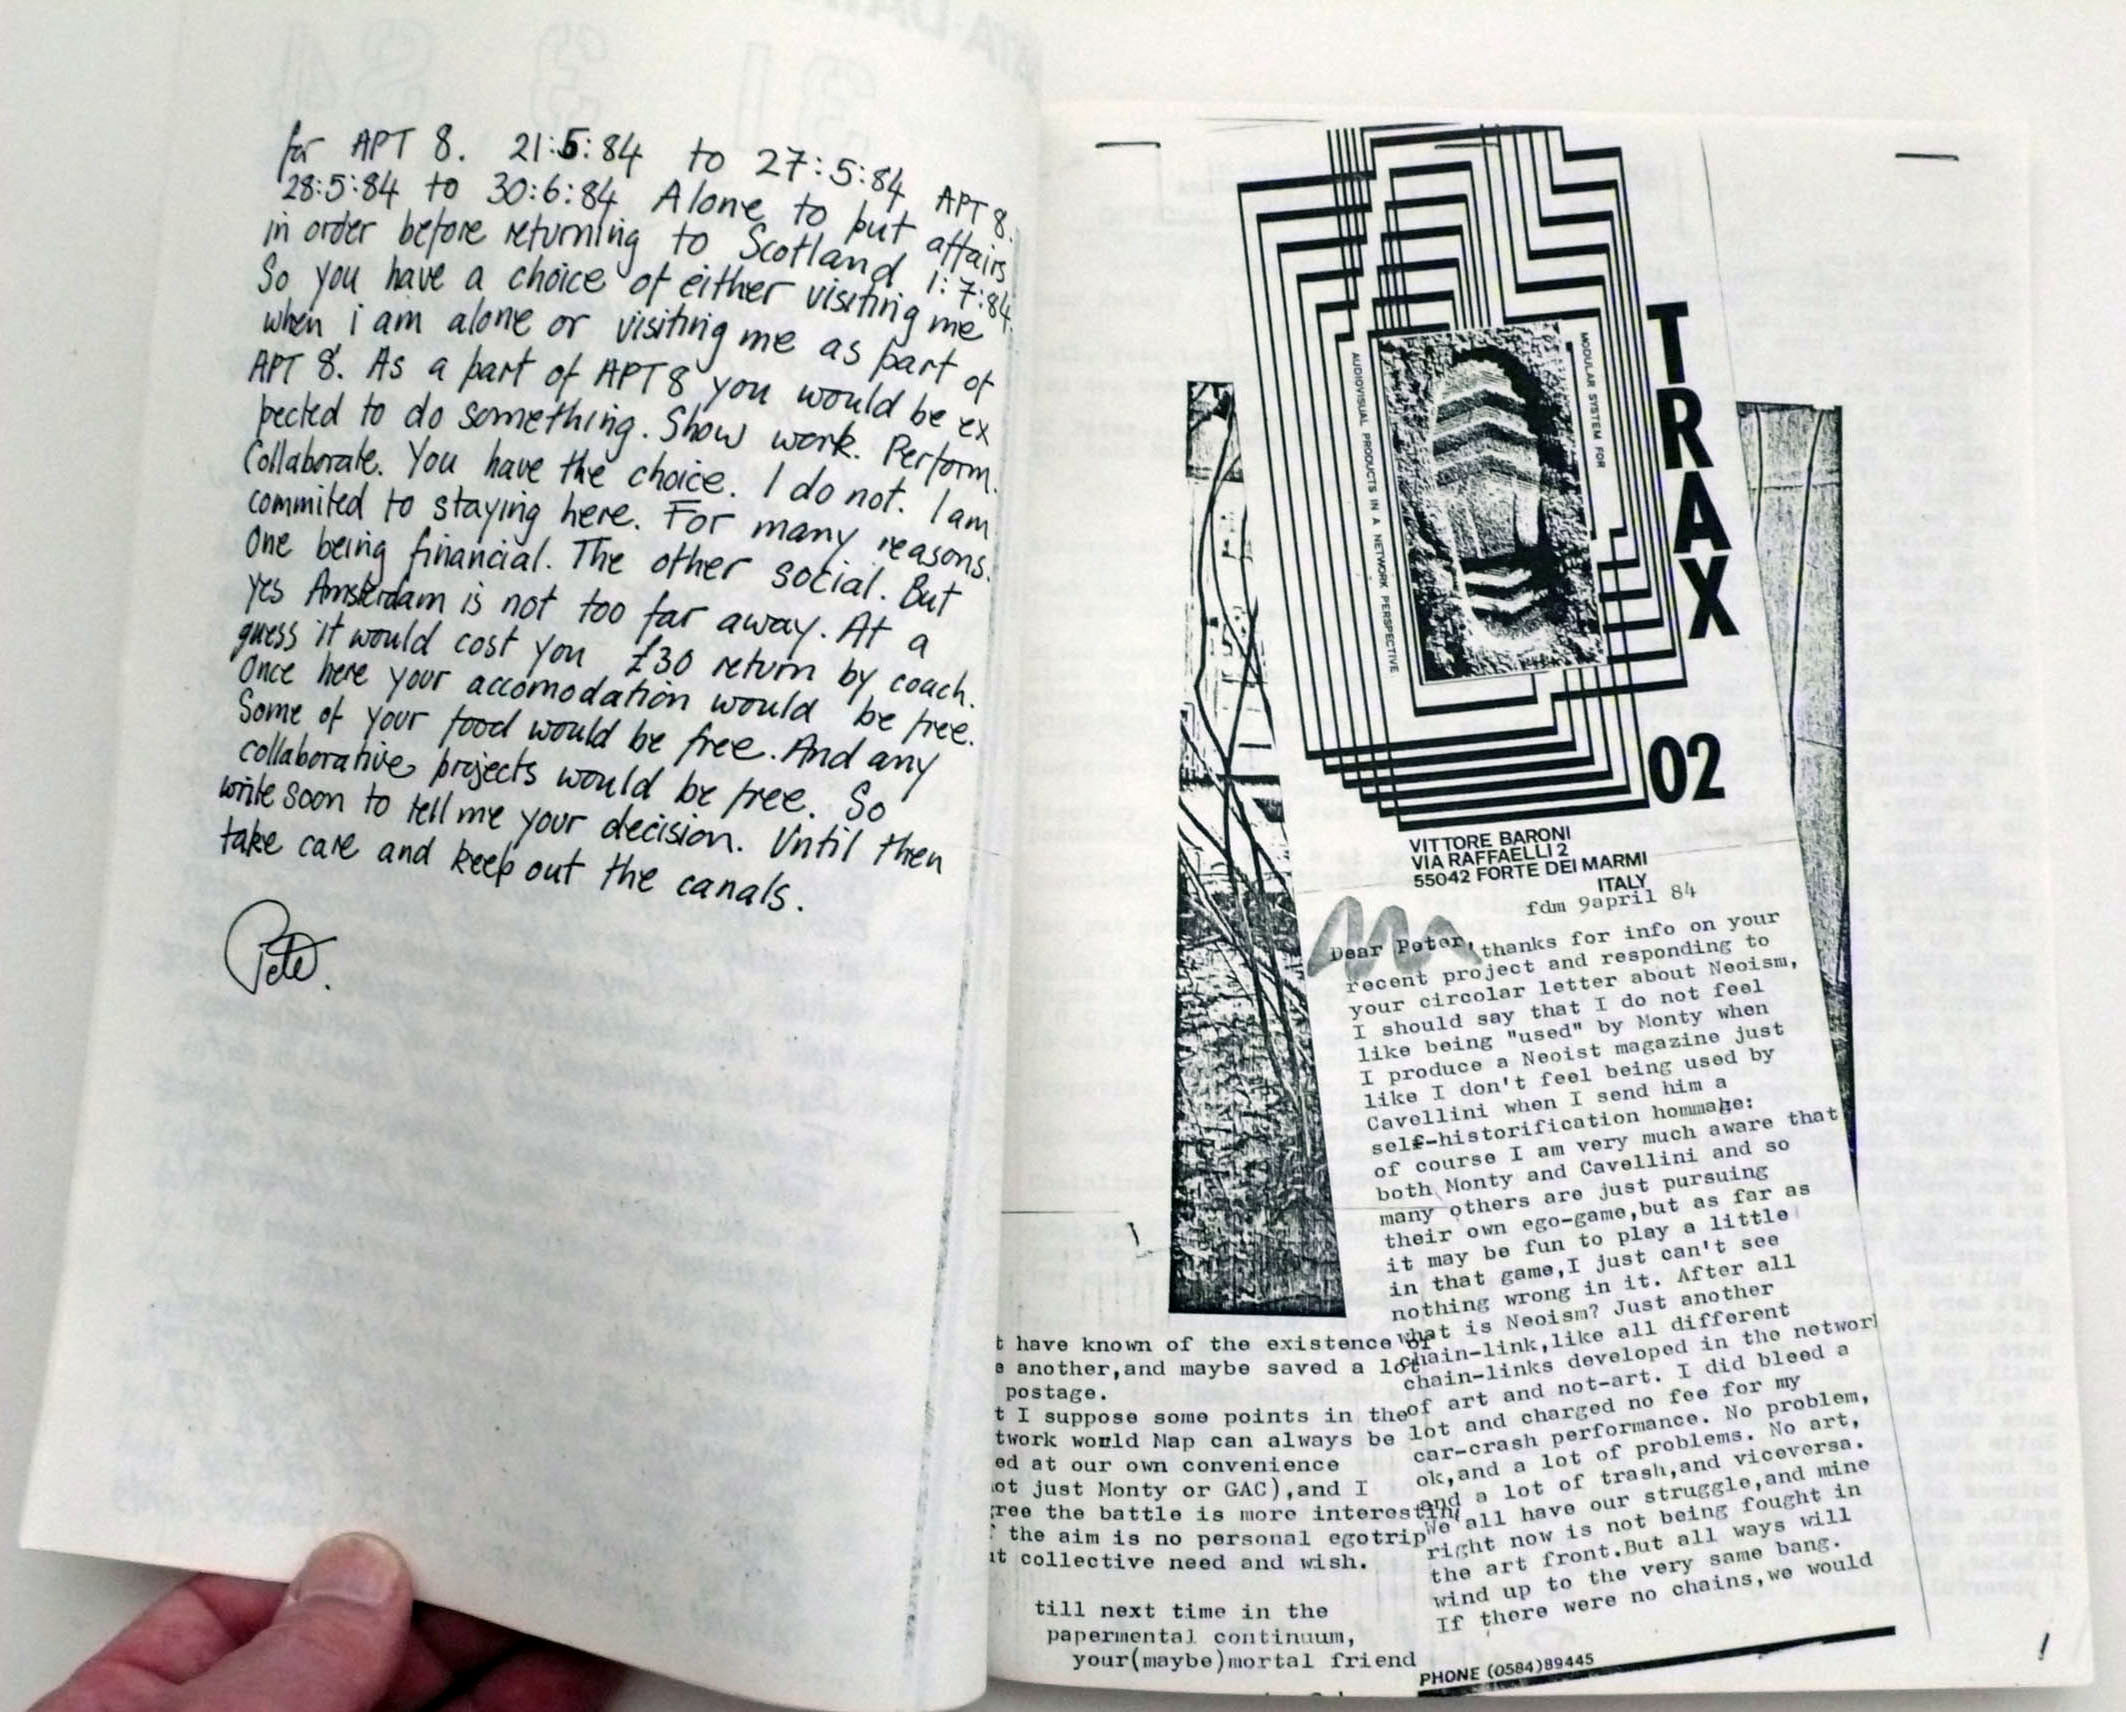 for APT 8. 21:5:84 to 27:5:84 APT 8.
28:5:84 to 30:6:84 Alone, to put affairs
in order before returning to Scotland 1:7:84.
So you have a choice of either visiting me
when i am alone or visiting me as part of
APT 8. As a part of APT 8 you would be ex
pected to do something. Show work. Perform.
Collaborate. You have the choice. I do not. I am
commited to staying here. For many reasons.
One being financial. The other social. But
yes Amsterdam is not too far away. At a
guess it would cost you £30 return by coach.
Once here your accomodation would be free.
Some of your food would be free. And any
collaborative projects would be free. So
write soon to tell me your decision. Until then
take care and keep out the canals.
Pete.
TRAX
MODULAR SYSTEM FOR
AUDIOVISUAL PRODUCTS IN A NETWORK PERSPECTIVE
02
VITTORE BARONI
VIA RAFFAELLI 2
55042 FORTE DEI MARMI
ITALY
fdm 9april 84
Dear Peter, thanks for info on your
recent project and responding to
your circolar letter about Neoism,
I should say that I do not feel
like being "used" by Monty when
I produce a Neoist magazine just
like I don't feel being used by
Cavellini when I send him a
self-historification hommage:
of course I am very much aware that
both Monty and Cavellini and so
many others are just pursuing
their own ego-game,but as far as
it may be fun to play a little
in that game,I just can't see
nothing wrong in it. After all
what is Neoism? Just another
chain-link,like all different
chain-links developed in the networ
of art and not-art. I did bleed a
lot and charged no fee for my
car-crash performance. No problem,
ok,and a lot of problems. No art,
and a lot of trash,and viceversa.
We all have our struggle,and mine
right now is not being fought in
the art front.But all ways will
wind up to the very same bang.
If there were no chains,we would
t have known of the existence of
e another,and maybe saved a lot
postage.
t I suppose some points in the
twork world Map can always be
ed at our own convenience
ot just Monty or GAC),and I
ree the battle is more interestin
the aim is no personal egotrip
t collective need and wish.
till next time in the
papermental continuum,
your(maybe)mortal friend
PHONE (0584)89445